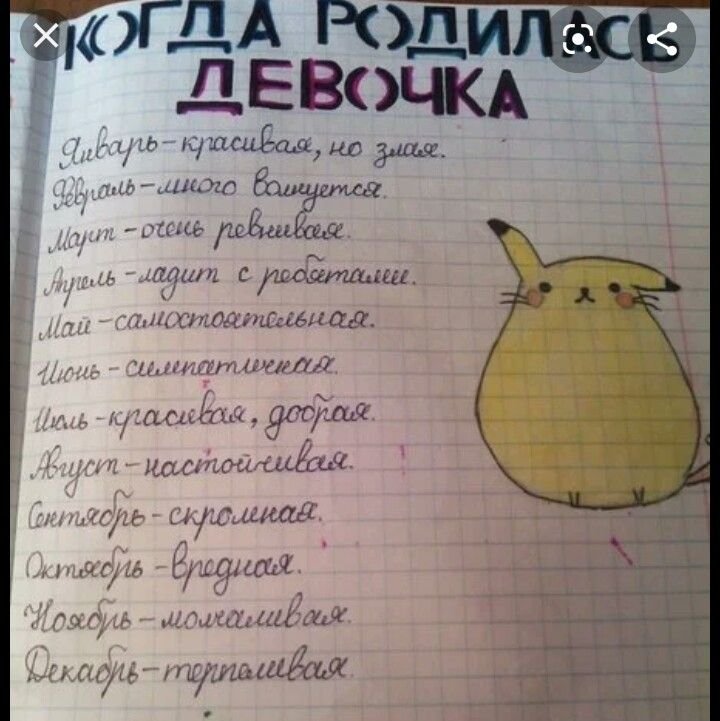 КОГДА РОДИЛАСЬ
ДЕВОЧКА
Январь-красивая, но злая.
Февраль-много волнуется.
Март-очень ревнивая.
Апрель-ладит с ребятами.
Май-самостоятельная.
Июнь-симпатичная.
Июль-красивая, добрая.
Август-настойчивая.
Сентябрь-скромная.
Октябрь-вредная.
Ноябрь-молчаливая.
Декабрь-терпеливая.